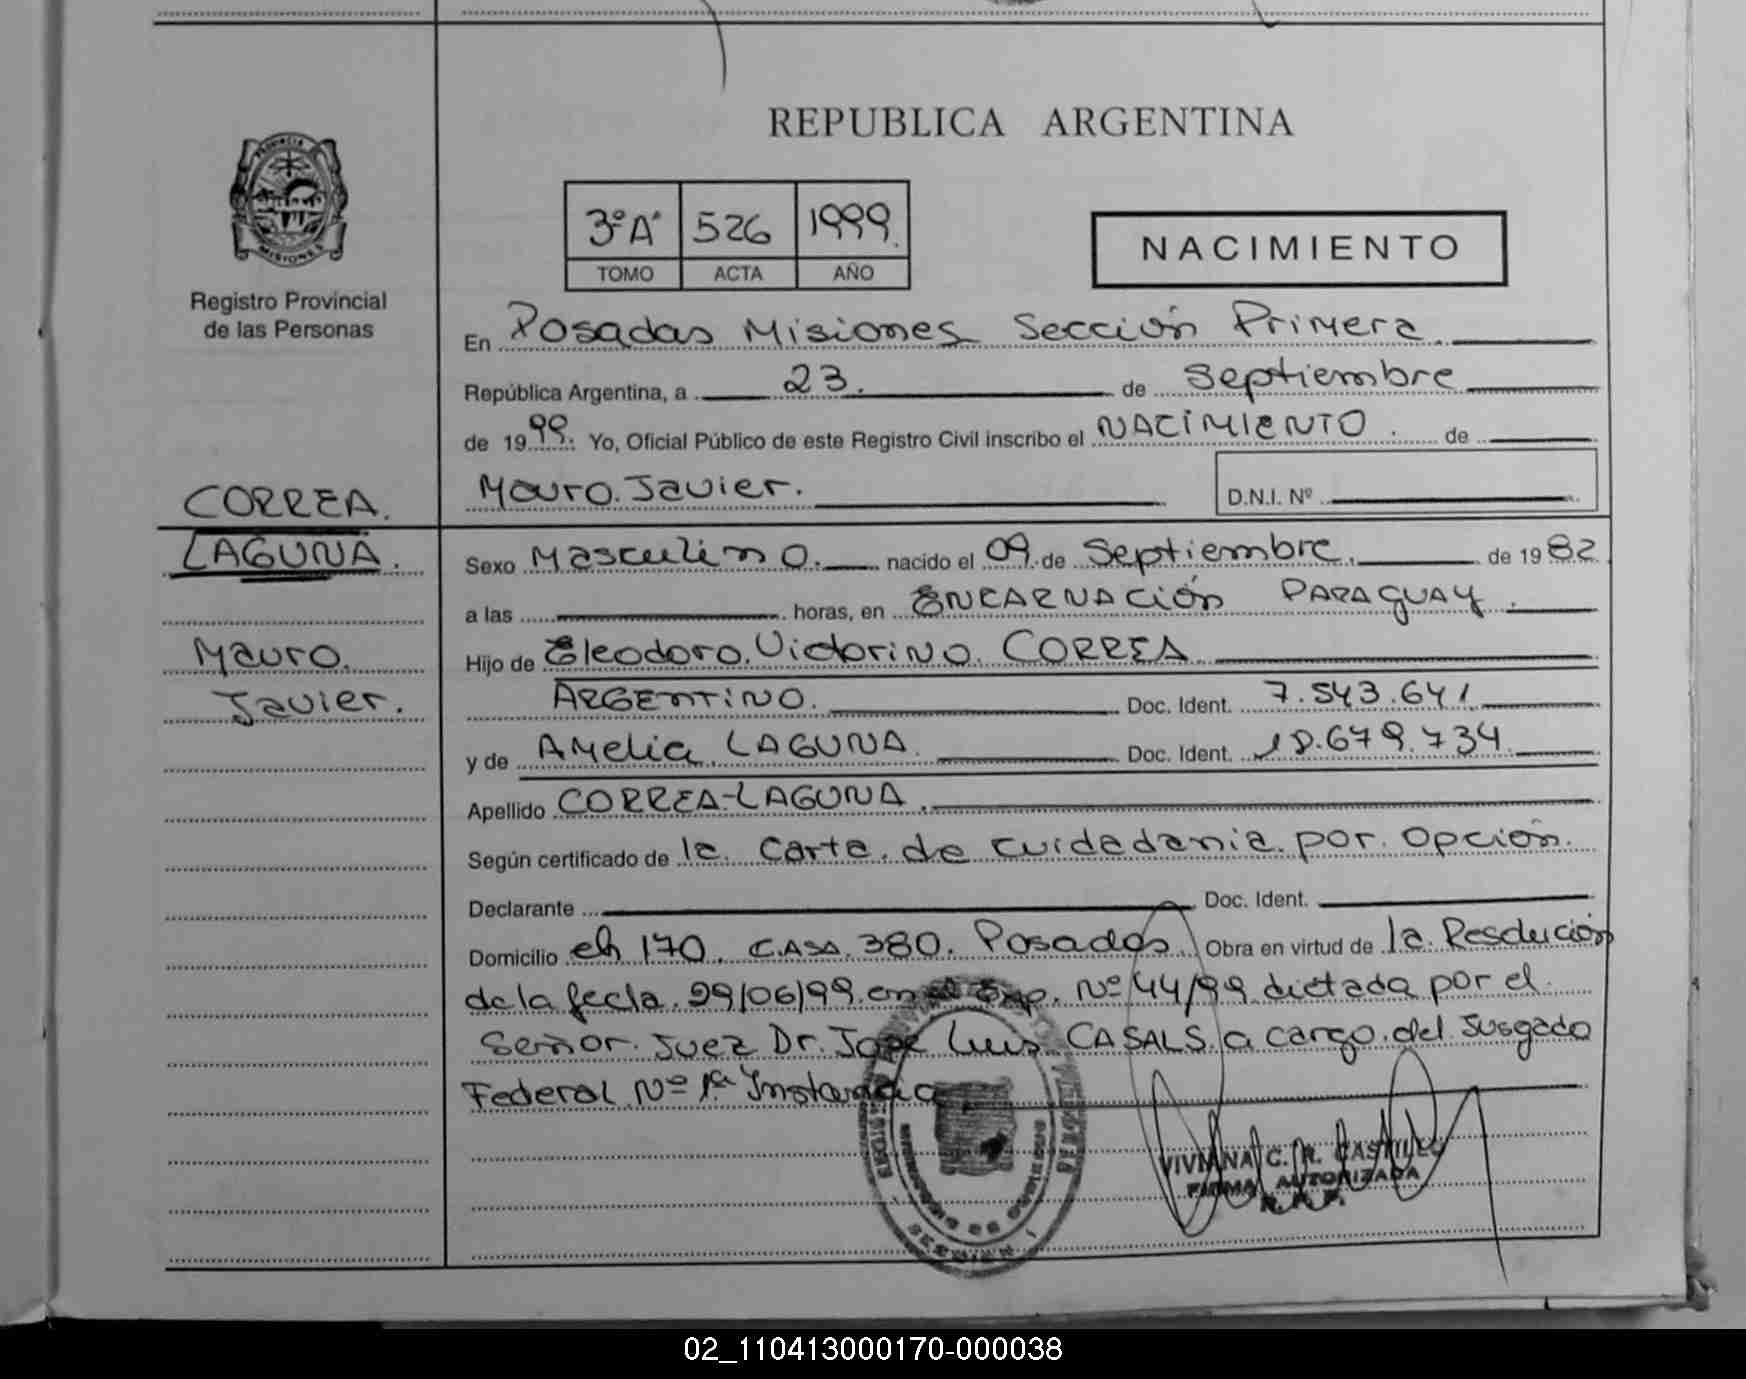 REPUBLICA ARGENTINA
PROVINCIA
MISIONES
Registro Provincial
de las Personas
3º"A" 526 1999.
TOMO ACTA AÑO
NACIMIENTO
En Posadas Misiones Sección Primera.
República Argentina, a 23. de Septiembre
de 1999. Yo, Oficial Público de este Registro Civil inscribo el NACIMIENTO. de
Mauro Javier. D.N.I. Nº
CORREA.
LAGUNA.
Mauro.
Javier.
Sexo Masculino. nacido el 09 de Septiembre. de 1982
a las horas, en ENCARNACIÓN PARAGUAY.
Hijo de Eleodoro Victorino CORREA
ARGENTINO. Doc. Ident. 7.543.641
y de Amelia LAGUNA. Doc. Ident. 18.679.734
Apellido CORREA-LAGUNA.
Según certificado de la Carta de cuidadania por opción.
Declarante Doc. Ident.
Domicilio ch 170. CASA 380. Posadas. Obra en virtud de la Resolución
de la fecla 29/06/99 en el Exp. Nº 44/99 dictada por el
Señor Juez Dr. Jose Luis CASALS a cargo del Jusgado
Federal Nº 1ª Instancia
VIVIANA C. R. CASTILLO
FIRMA AUTORIZADA
02_110413000170-000038